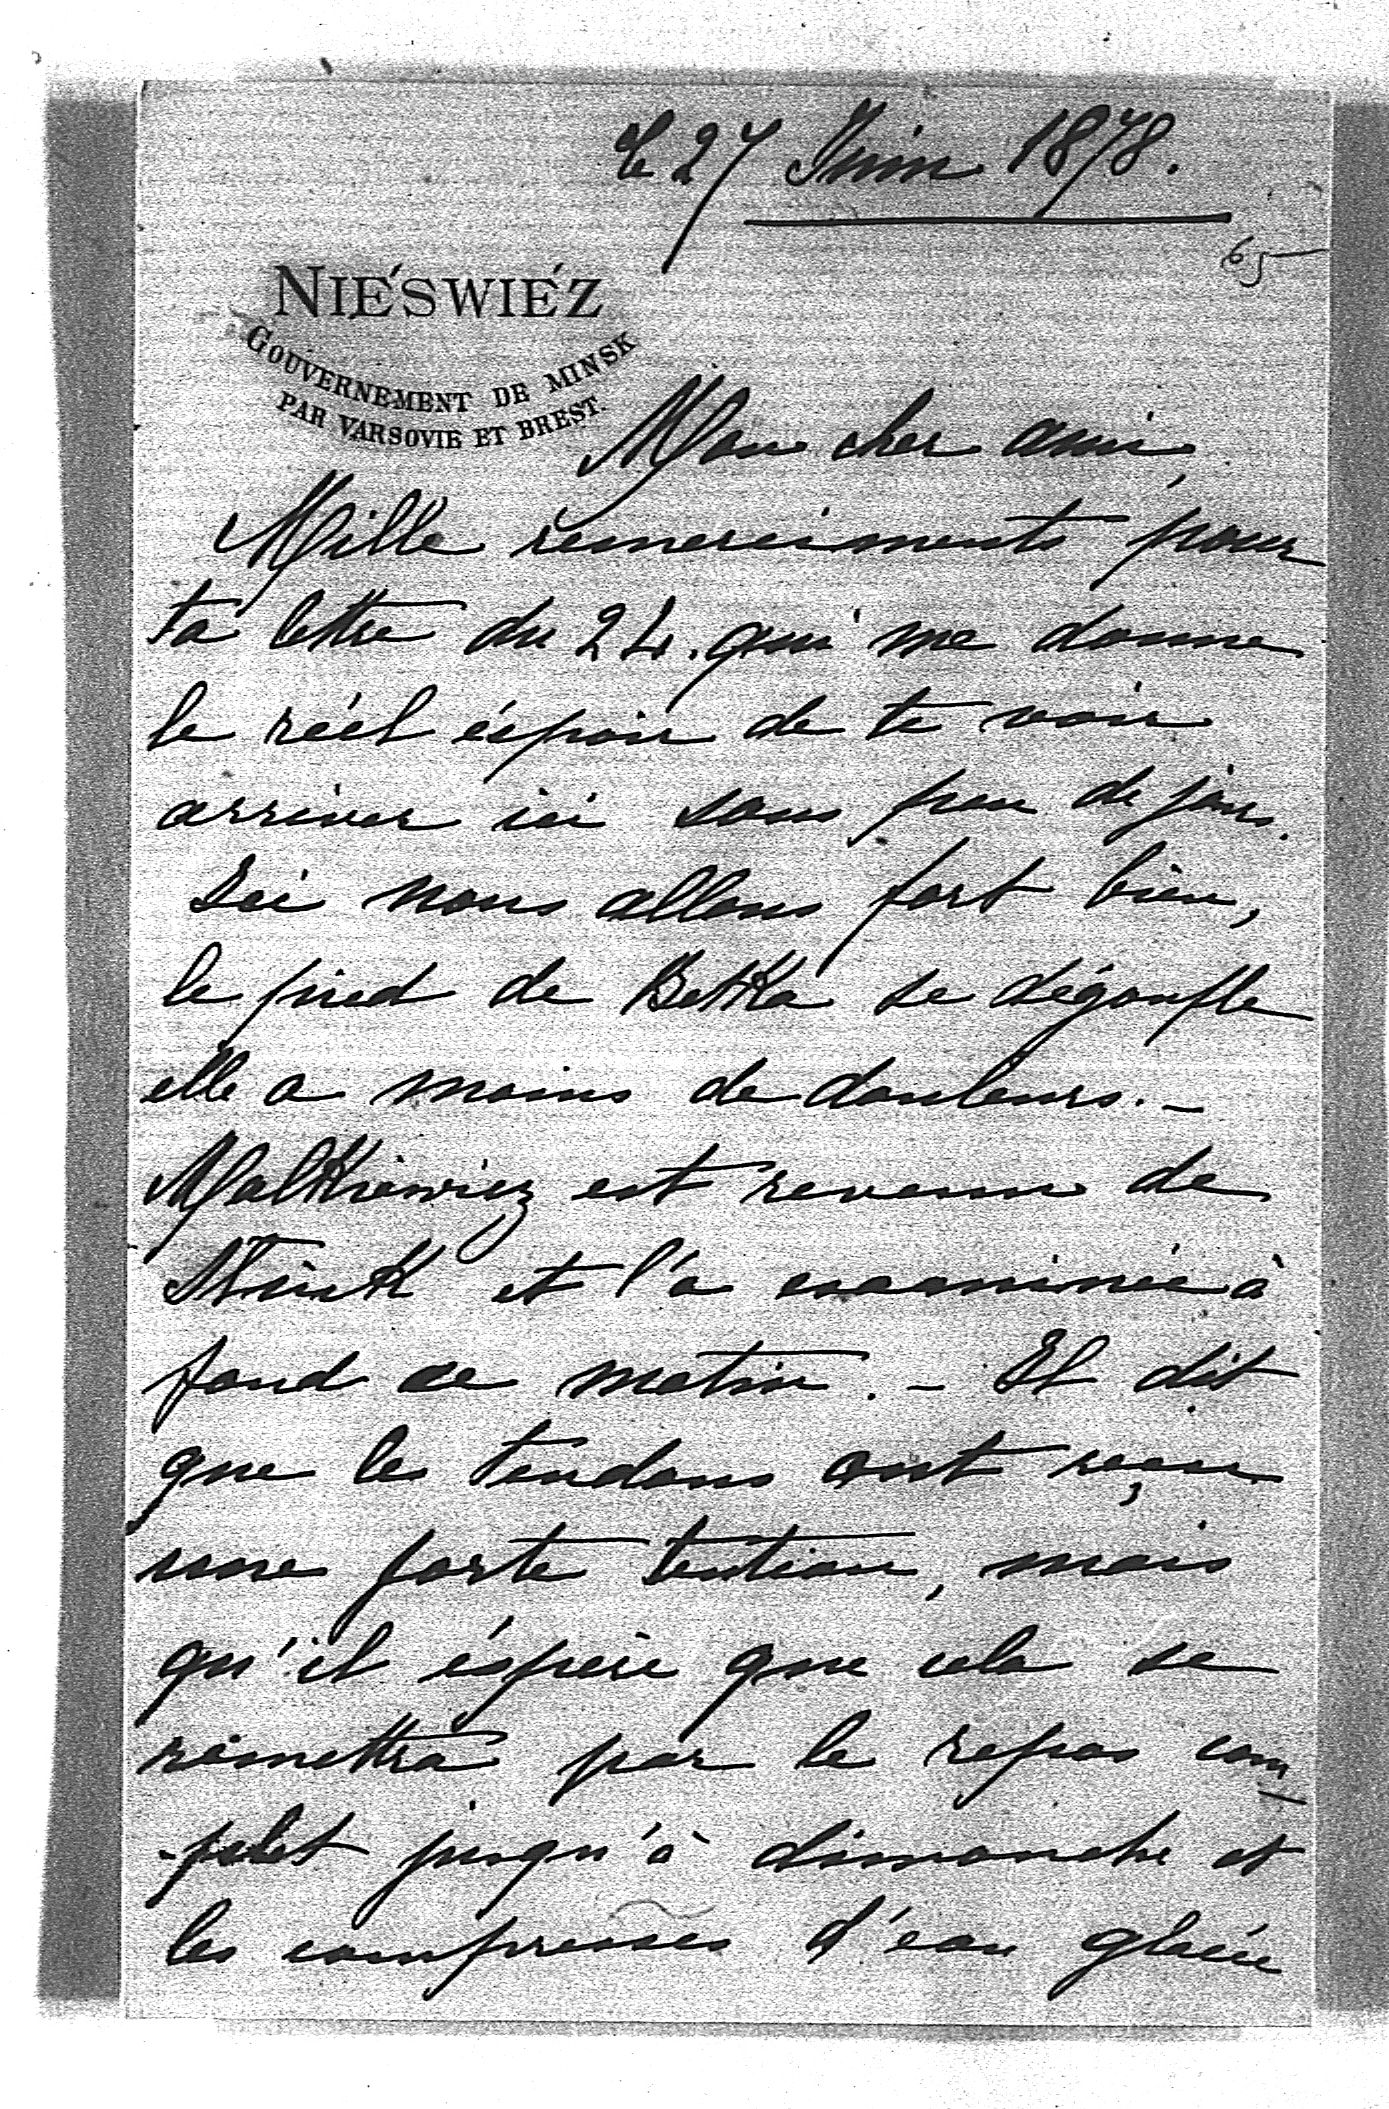 Le 27 Juin 1878.
65
NIÉSWIÉZ
GOUVERNEMENT DE MINSK
PAR VARSOVIE ET BREST.
Mon cher ami,
Mille remerciments pour
ta lettre du 24. qui me donne
le réel éspoir de te voir
arriver ici sous peu de jours.
Ici nous allons fort bien,
le pied de Betka se dégonfle
elle a moins de douleurs. –
Malkiewicz est revenu de
et l'a examinée à
fond ce matin. – Il dit
que les tendons ont reçu
une forte tention, mais
qu'il éspère que cela se
remettra par le repos com
-plet jusqu'à dimanche et
les compresses d'eau glacée